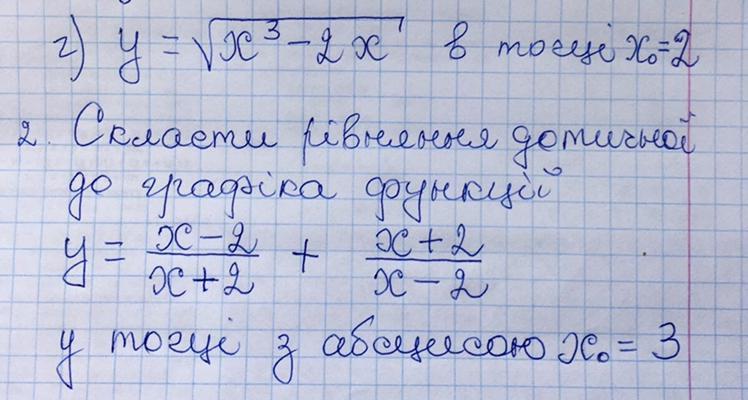 г) y = √(x³ − 2x) в точці x₀ = 2
2. Скласти рівняння дотичної
до графіка функцій
y = (x − 2)/(x + 2) + (x + 2)/(x − 2)
у точці з абсцисою x₀ = 3